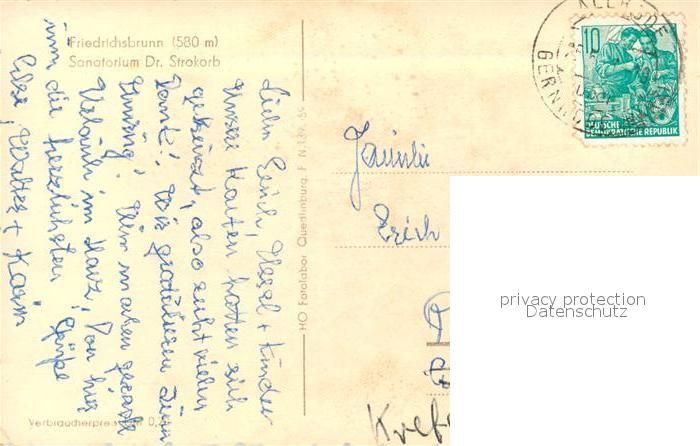 Friedrichsbrunn (580 m)
Sanatorium Dr. Strokorb
Liebe Erich, + Kinder
Unsere Karten hatten sich
gekreuzt, also recht vielen
Dank! Wir gratulieren zum
Wir machen gerade
Urlaub im Harz. Von hier
nun die herzlichsten Grüße
Elke, Walter + Karin
HO Fotolabor Quedlinburg
Verbraucherpreis
Familie
Erich
Krefe
10
DEUTSCHE
DEMOKRATISCHE REPUBLIK
GERNRODE
privacy protection
Datenschutz